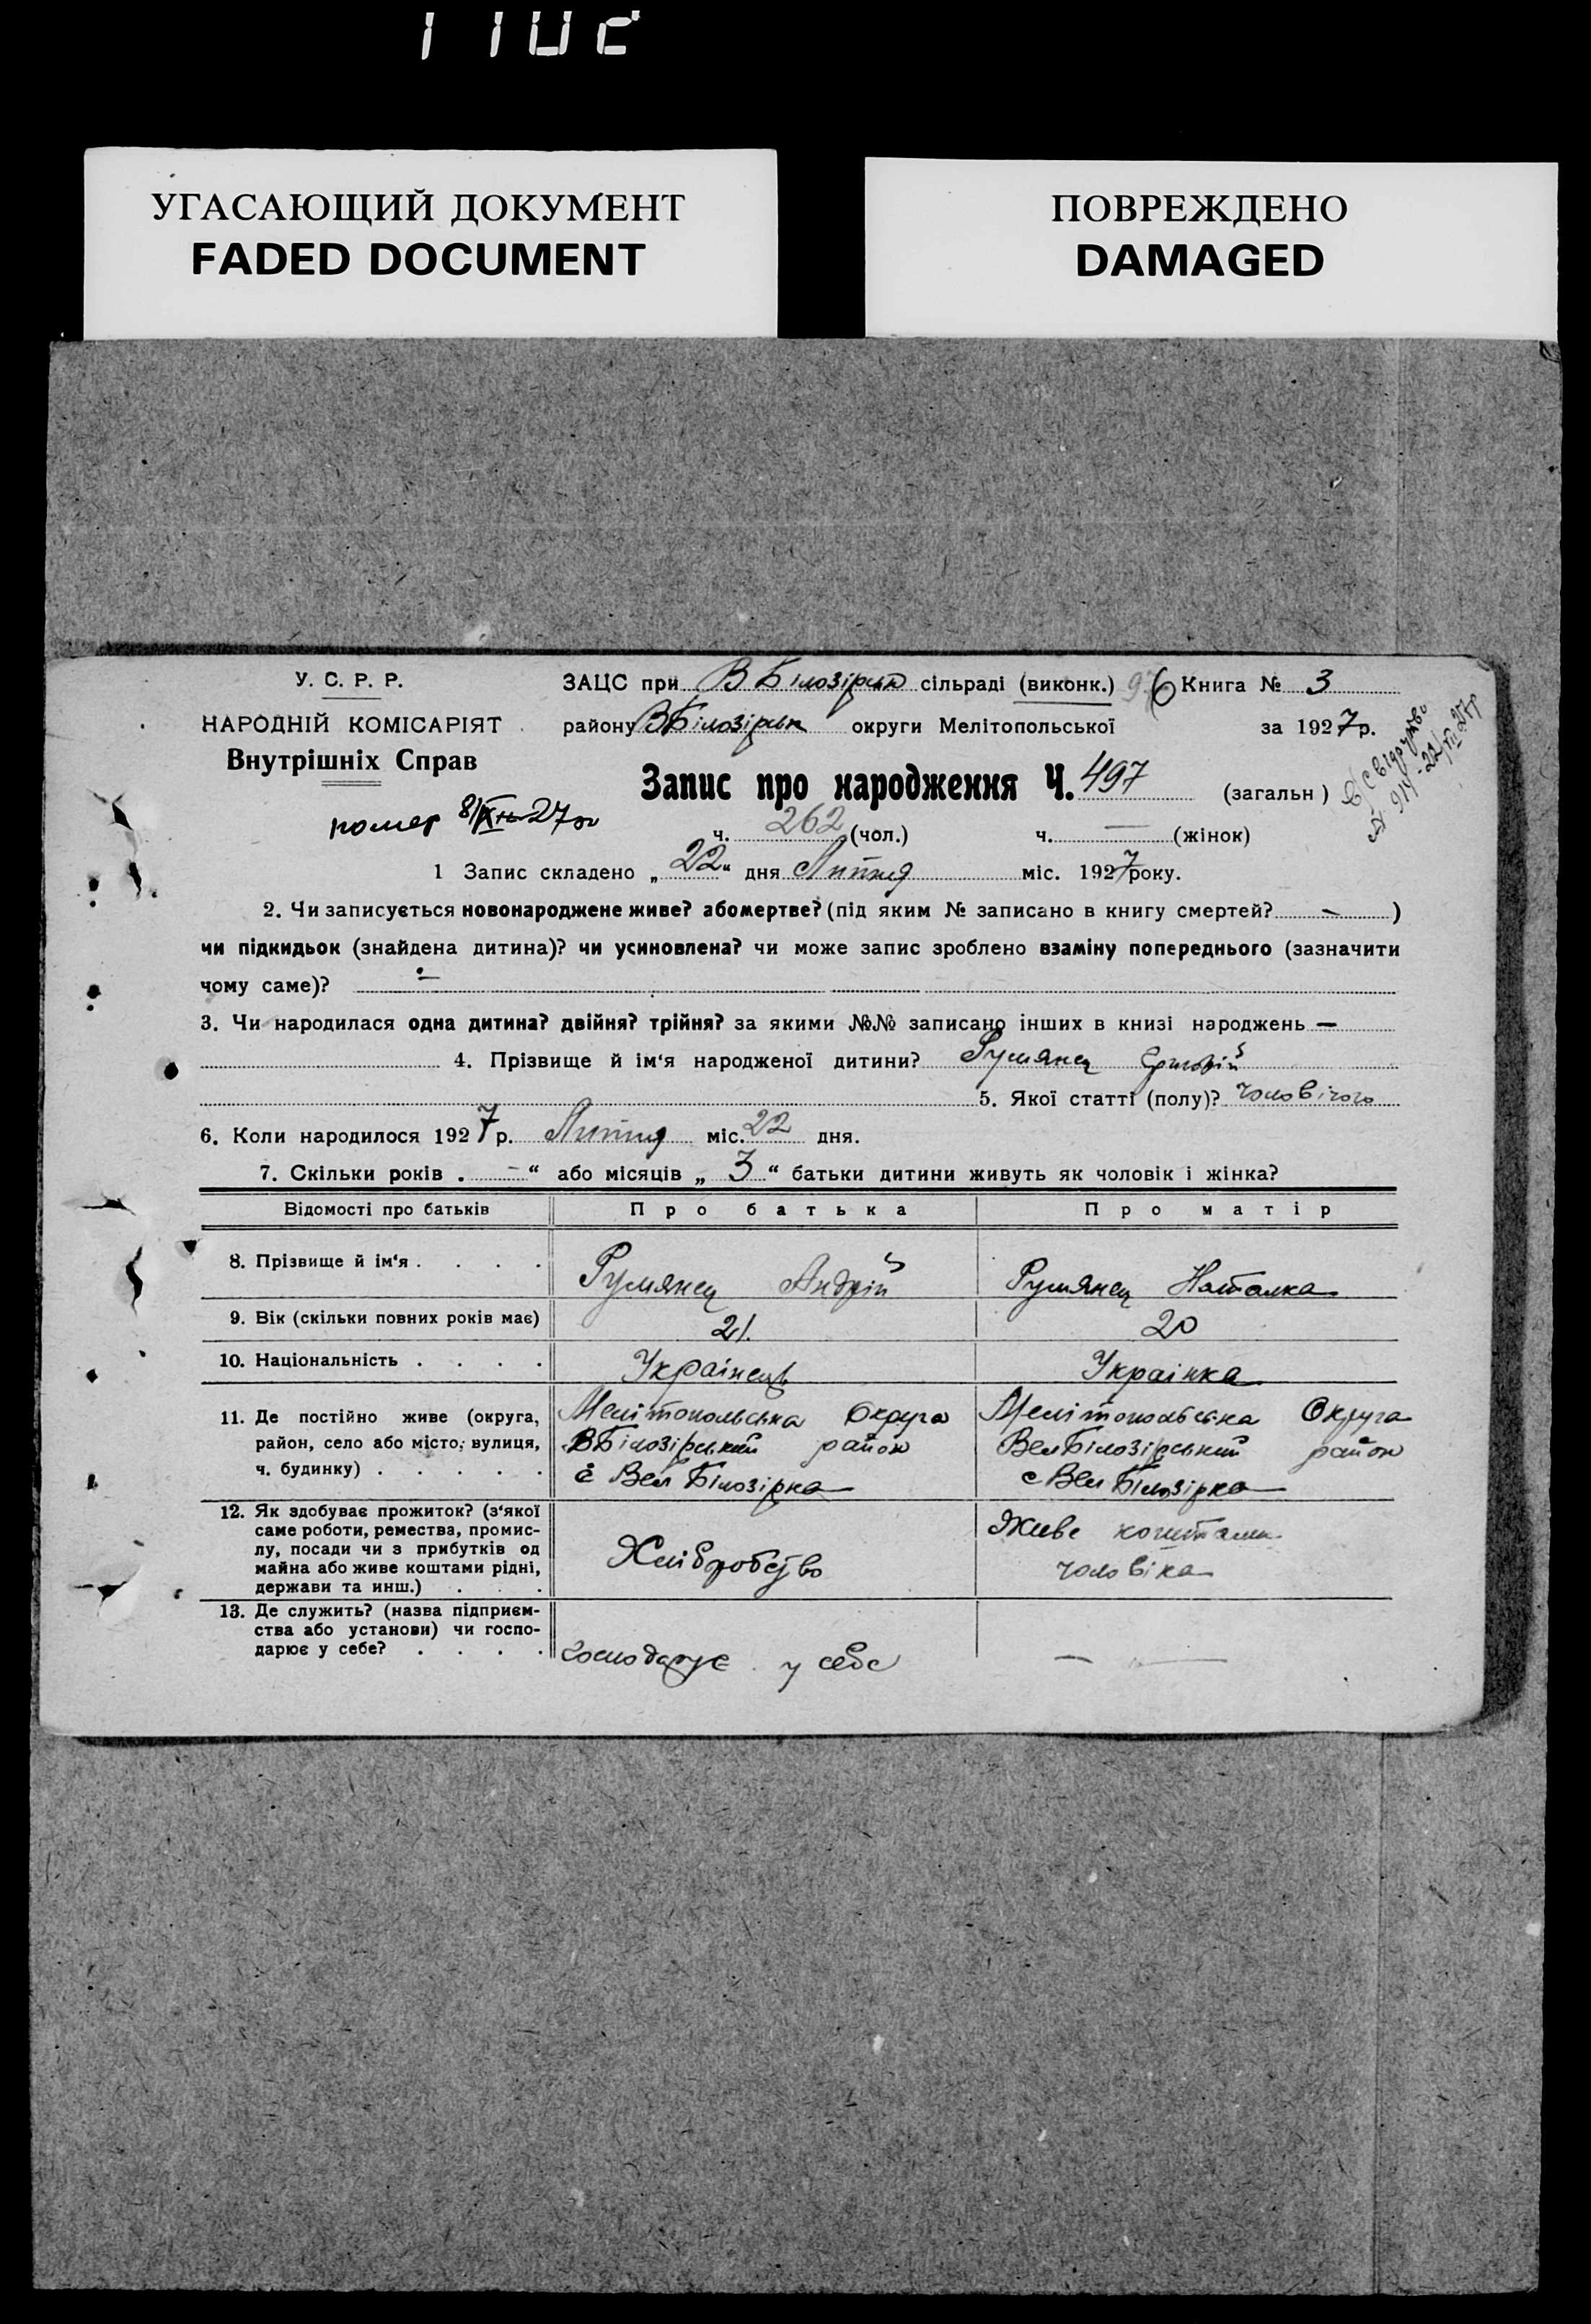 УГАСАЮЩИЙ ДОКУМЕНТ
FADED DOCUMENT
ПОВРЕЖДЕНО
DAMAGED
У. С. Р. Р.
НАРОДНІЙ КОМІСАРІЯТ
Внутрішніх Справ
помер 8/XII 27
ЗАЦС при В Білозірськ сільраді (виконк.) 96 Книга № 3
району ВБілозірськ округи Мелітопольської за 1927р.
Запис про народження Ч. 497 (загальн)
ч. 262 (чол.) ч. — (жінок)
1 Запис складено „22“ дня Липня міс. 1927року.
2. Чи записується новонароджене живе? абомертве? (під яким № записано в книгу смертей? — )
чи підкидьок (знайдена дитина)? чи усиновлена? чи може запис зроблено взаміну попереднього (зазначити
чому саме)? —
3. Чи народилася одна дитина? двійня? трійня? за якими №№ записано інших в книзі народжень —
4. Прізвище й ім'я народженої дитини? Румянец
5. Якої статті (полу)? чоловічого
6. Коли народилося 1927р. Липня міс. 22 дня.
7. Скільки років . — “ або місяців „ 3 “ батьки дитини живуть як чоловік і жінка?
Відомості про батьків Про батька Про матір
8. Прізвище й ім'я . . . . Румянец Андрій Румянец Наталка
9. Вік (скільки повних років має) 21. 20
10. Національність . . . . Українець Українка
11. Де постійно живе (округа, район, село або місто, вулиця, ч. будинку) . . . . .
Мелітопольська Округа
ВБілозірський район
с Вел Білозірка
Мелітопольська Округа
ВелБілозірський район
с Вел Білозірка
12. Як здобуває прожиток? (з'якої
саме роботи, ремества, промис-
лу, посади чи з прибутків од
майна або живе коштами рідні,
держави та инш.) . . .
Хліборобство
Живе коштами
чоловіка
13. Де служить? (назва підприєм-
ства або установи) чи госпо-
дарює у себе? . . . .
господарує у себе
—